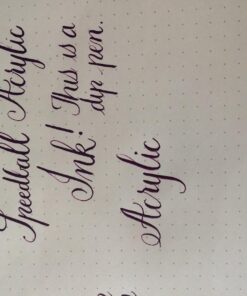 Speedball Acrylic
Ink! This is a
dip-pen.
Acrylic